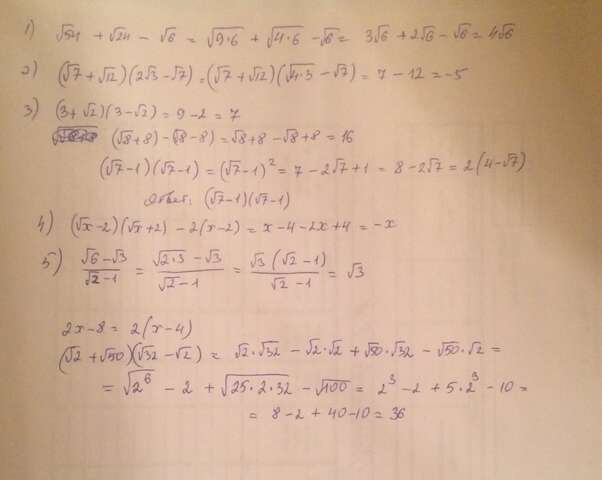 1) √54 + √24 - √6 = √9·6 + √4·6 - √6 = 3√6 + 2√6 - √6 = 4√6
2) (√7 + √12)(2√3 - √7) = (√7 + √12)(√4·3 - √7) = 7 - 12 = -5
3) (3 + √2)(3 - √2) = 9 - 2 = 7
(√8 + 8) - (√8 - 8) = √8 + 8 - √8 + 8 = 16
(√7 - 1)(√7 - 1) = (√7 - 1)² = 7 - 2√7 + 1 = 8 - 2√7 = 2(4 - √7)
Ответ: (√7 - 1)(√7 - 1)
4) (√x - 2)(√x + 2) - 2(x - 2) = x - 4 - 2x + 4 = -x
5) (√6 - √3)/(√2 - 1) = (√2·3 - √3)/(√2 - 1) = √3(√2 - 1)/(√2 - 1) = √3
2x - 8 = 2(x - 4)
(√2 + √50)(√32 - √2) = √2·√32 - √2·√2 + √50·√32 - √50·√2 =
= √2⁶ - 2 + √25·2·32 - √100 = 2³ - 2 + 5·2³ - 10 =
= 8 - 2 + 40 - 10 = 36